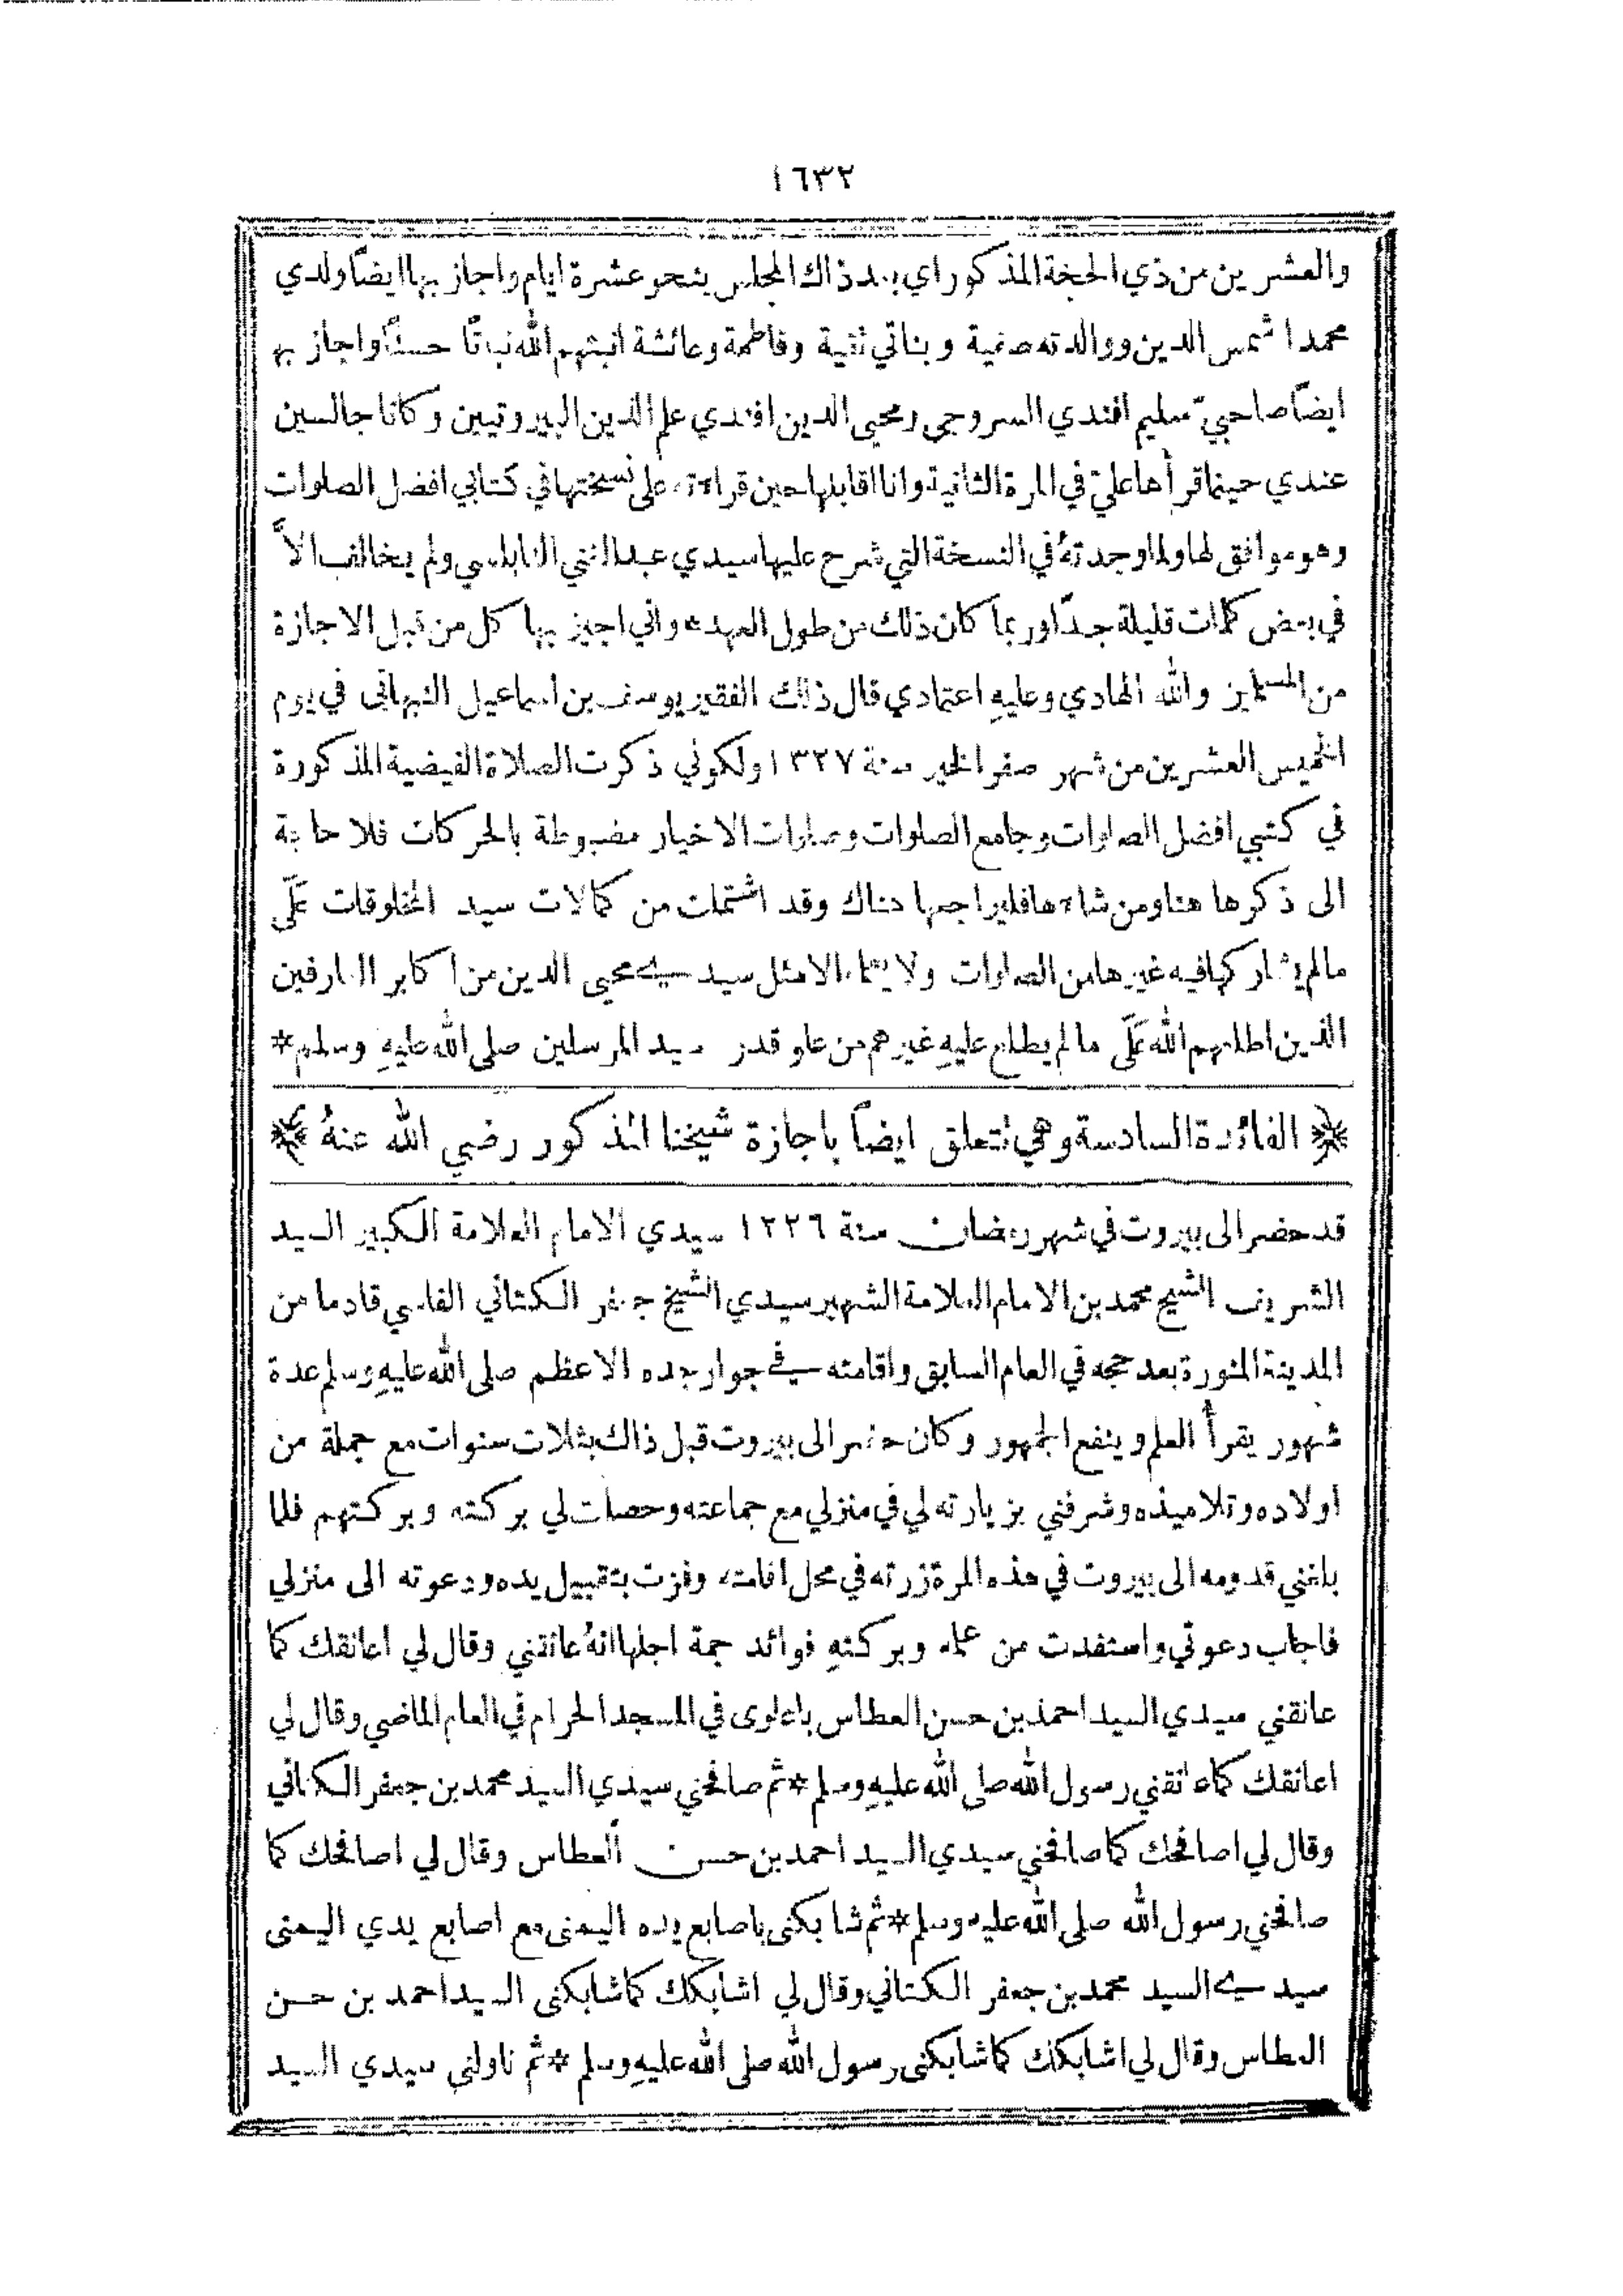 ١٦٣٢
والعشرين من ذي الحجة المذكور اي بعد ذاك المجلس بنحو عشرة ايام واجاز بها ايضاً ولدي
محمدا شمس الدين ووالدته صفية وبناتي تقية وفاطمة وعائشة انبتهم الله نباتًا حسنًا واجاز بها
ايضاً صاحبيّ سليم افندي السروجي ومحيى الدين افندي علم الدين البيروتيين وكانا جالسين
عندي حينما قرأها عليّ في المرة الثانية وانا اقابلها حين قراءته على نسختها في كتابي افضل الصلوات
وهو موافق لها ولما وجدتهُ في النسخة التي شرح عليها سيدي عبد الغني النابلسي ولم يخالف الاَّ
في بعض كلمات قليلة جدًا وربما كان ذلك من طول العهد * واني اجيز بها كل من قبل الاجازة
من المسلمين والله الهادي وعليهِ اعتمادي قال ذلك الفقير يوسف بن اسماعيل النبهاني في يوم
الخميس العشرين من شهر صفر الخير سنة ١٣٢٧ ولكوني ذكرت الصلاة الفيضية المذكورة
في كتبي افضل الصلوات وجامع الصلوات وصلوات الاخيار مضبوطة بالحركات فلا حاجة
الى ذكرها هنا ومن شاءها فليراجعها هناك وقد اشتملت من كمالات سيد المخلوقات عَلَى
ما لم يشاركها فيه غيرها من الصلوات ولا يعلمه الا مثل سيدي محيى الدين من اكابر العارفين
الذين اطلعهم الله عَلَى ما لم يطلع عليهِ غيرهم من علو قدر سيد المرسلين صلى الله عليهِ وسلم *
﴿ الفائدة السادسة وهي تتعلق ايضاً باجازة شيخنا المذكور رضي الله عنهُ ﴾
قد حضر الى بيروت في شهر رمضان سنة ١٣٢٦ سيدي الامام العلامة الكبير السيد
الشريف الشيخ محمد بن الامام العلامة الشهير سيدي الشيخ جعفر الكتاني الفاسي قادما من
المدينة المنورة بعد حجه في العام السابق واقامته في جوار جده الاعظم صلى الله عليهِ وسلم عدة
شهور يقرأ العلم وينفع الجمهور وكان حضر الى بيروت قبل ذاك بثلاث سنوات مع جملة من
اولاده وتلاميذه وشرفني بزيارته لي في منزلي مع جماعته وحصلت لي بركته وبركتهم فلما
بلغني قدومه الى بيروت في هذه المرة زرته في محل اقامته وفزت بتقبيل يده ودعوته الى منزلي
فاجاب دعوتي واستفدت من علمه وبركتهِ فوائد جمة اجلها انهُ عانقني وقال لي اعانقك كما
عانقني سيدي السيد احمد بن حسن العطاس باعلوى في المسجد الحرام في العام الماضي وقال لي
اعانقك كما عانقني رسول الله صلى الله عليهِ وسلم * ثم صافحني سيدي السيد محمد بن جعفر الكتاني
وقال لي اصافحك كما صافحني سيدي السيد احمد بن حسن العطاس وقال لي اصافحك كما
صافحني رسول الله صلى الله عليه وسلم * ثم شابكنى باصابع يده اليمنى مع اصابع يدي اليمنى
سيدي السيد محمد بن جعفر الكتاني وقال لي اشابكك كما شابكنى السيد احمد بن حسن
العطاس وقال لي اشابكك كما شابكنى رسول الله صلى الله عليهِ وسلم * ثم ناولني سيدي السيد